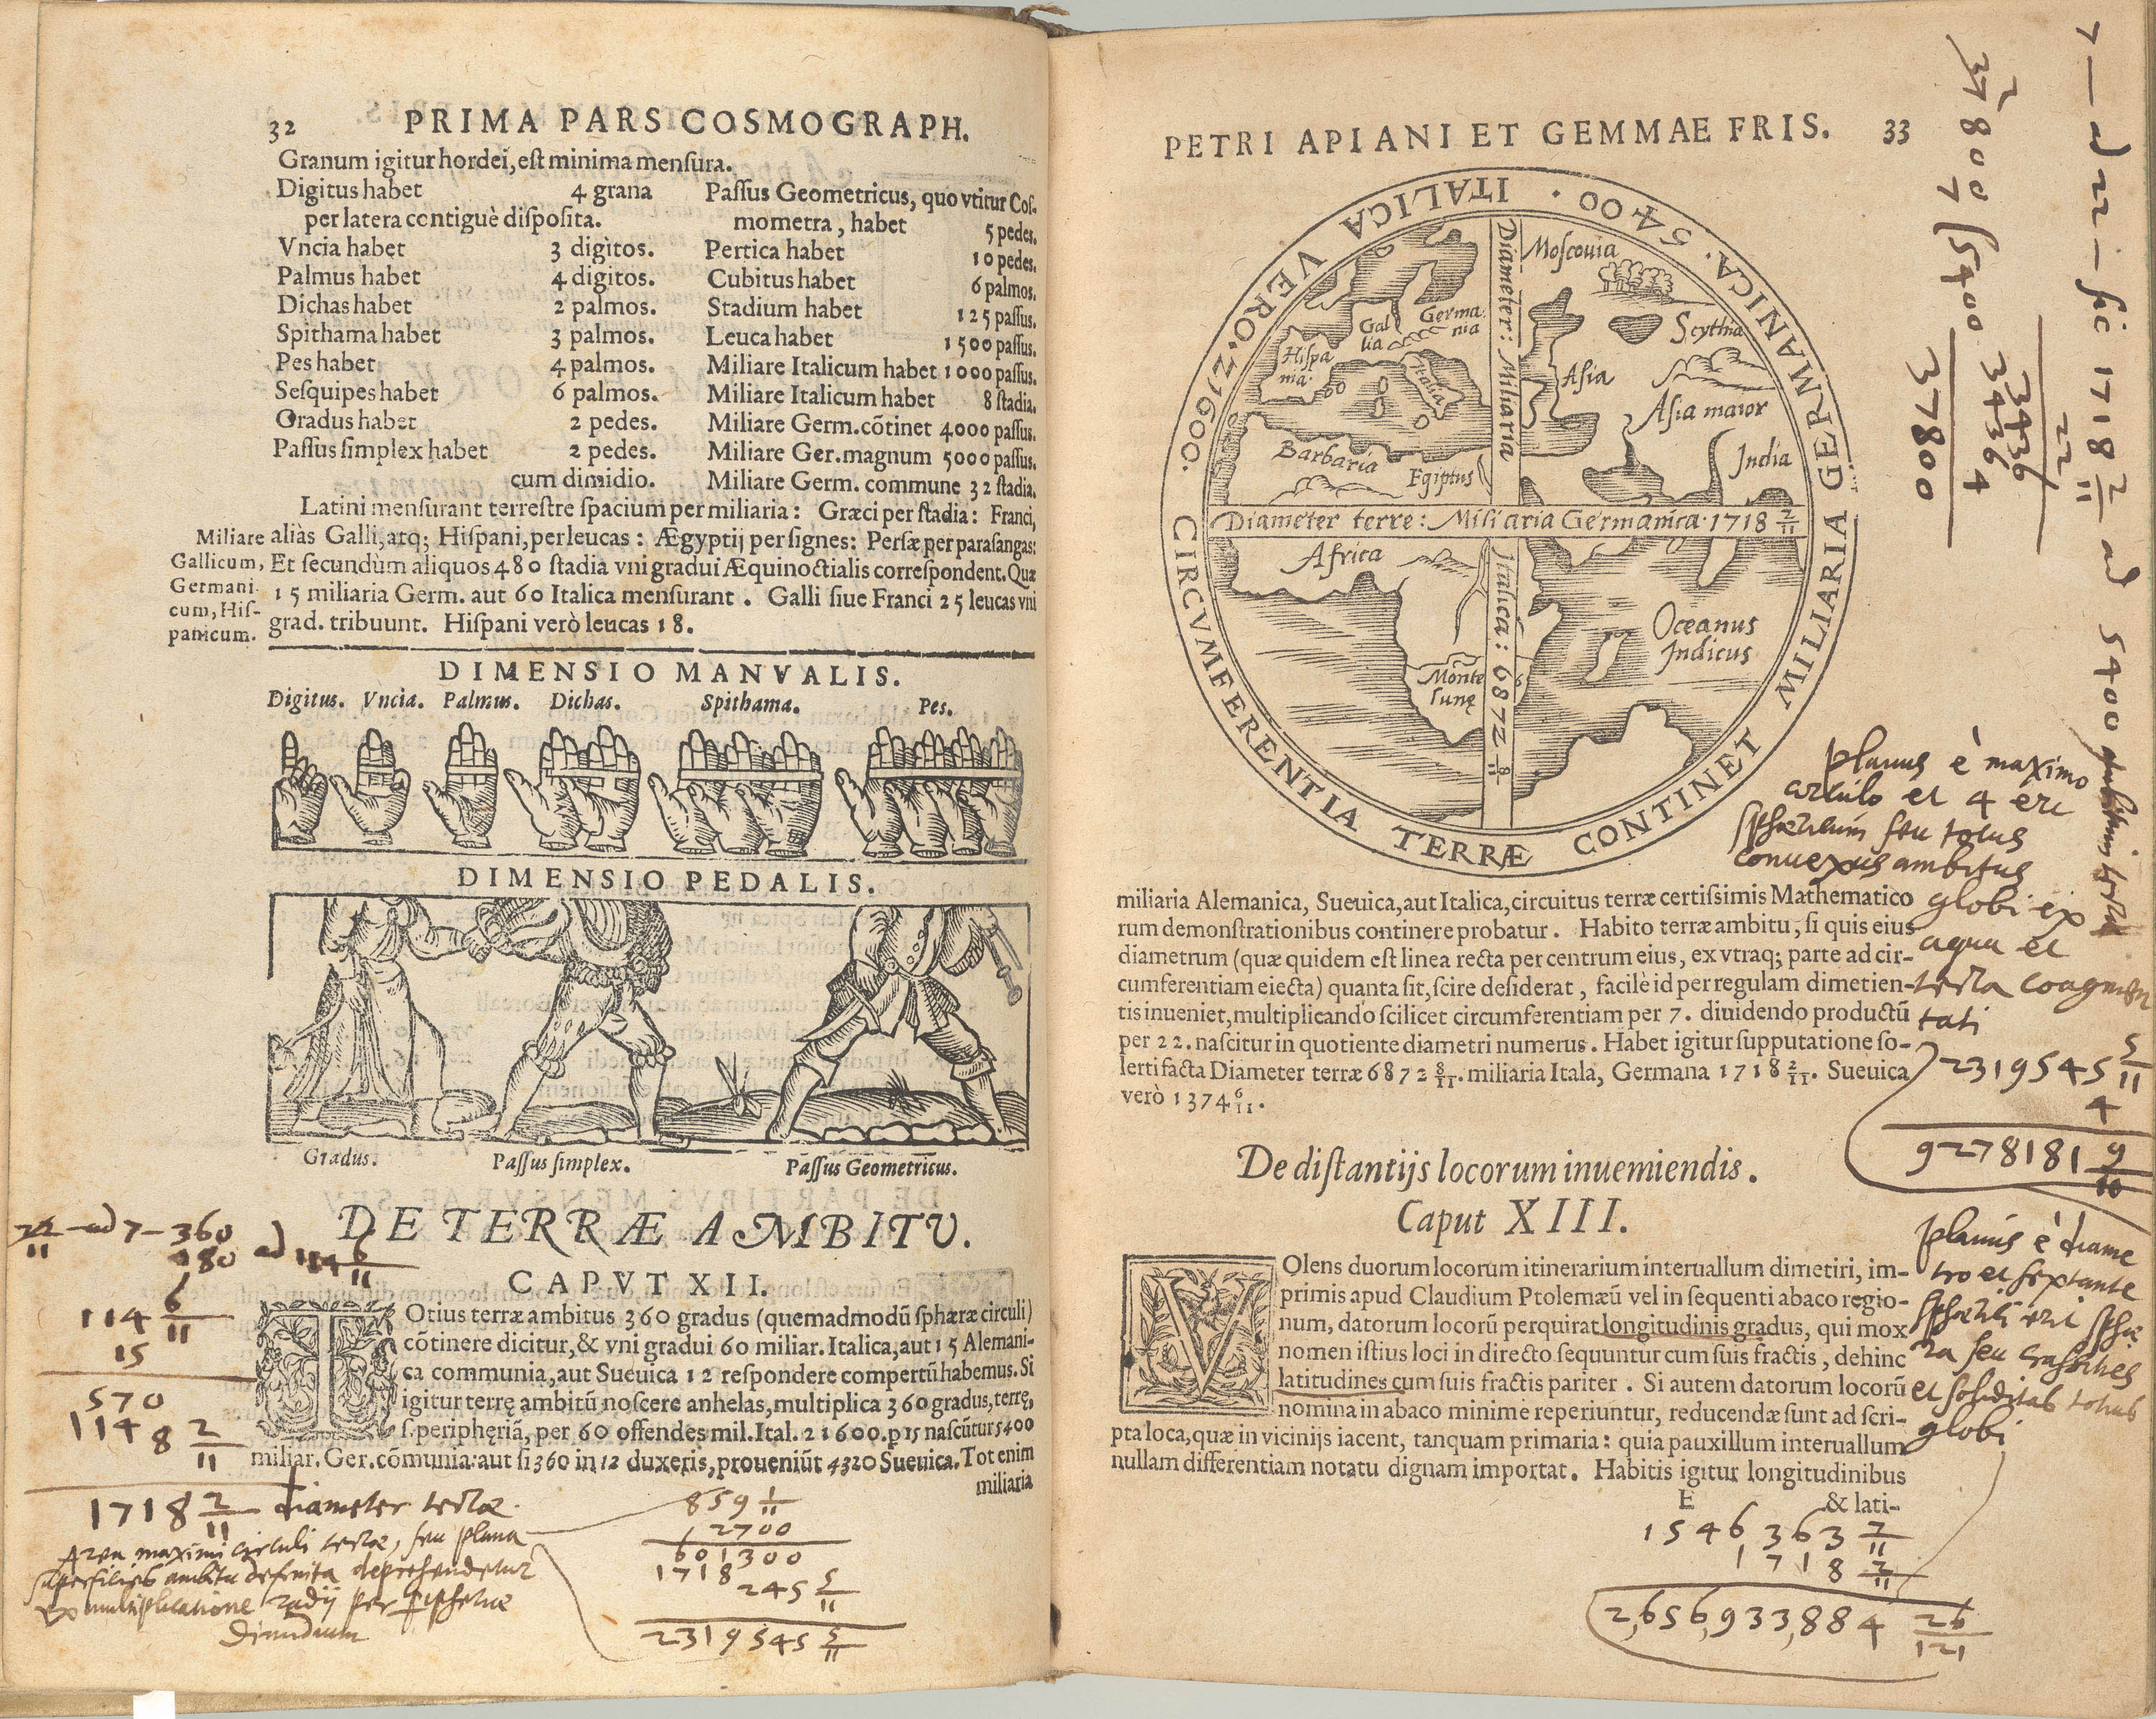 32 PRIMA PARS COSMOGRAPH.
Granum igitur hordei, eſt minima menſura.
Digitus habet 4 grana
per latera contiguè diſpoſita.
Vncia habet 3 digitos.
Palmus habet 4 digitos.
Dichas habet 2 palmos.
Spithama habet 3 palmos.
Pes habet 4 palmos.
Seſquipes habet 6 palmos.
Gradus habet 2 pedes.
Paſſus ſimplex habet 2 pedes.
cum dimidio.
Paſſus Geometricus, quo vtitur Coſ-
mometra, habet 5 pedes.
Pertica habet 10 pedes.
Cubitus habet 6 palmos.
Stadium habet 125 paſſus.
Leuca habet 1500 paſſus.
Miliare Italicum habet 1000 paſſus.
Miliare Italicum habet 8 ſtadia.
Miliare Germ. cõtinet 4000 paſſus.
Miliare Ger. magnum 5000 paſſus.
Miliare Germ. commune 32 ſtadia.
Latini menſurant terreſtre ſpacium per miliaria: Græci per ſtadia: Franci,
aliàs Galli, atq; Hiſpani, per leucas: Ægyptij per ſignes: Perſæ per paraſangas:
Et ſecundùm aliquos 480 ſtadia vni gradui Æquinoctialis correſpondent. Quæ
15 miliaria Germ. aut 60 Italica menſurant. Galli ſiue Franci 25 leucas vni
grad. tribuunt. Hiſpani verò leucas 18.
Miliare
Gallicum,
Germani-
cum, Hiſ-
panicum.
DIMENSIO MANVALIS.
Digitus. Vncia. Palmus. Dichas. Spithama. Pes.
DIMENSIO PEDALIS.
Gradus. Paſſus ſimplex. Paſſus Geometricus.
DE TERRÆ AMBITV.
CAPVT XII.
TOtius terræ ambitus 360 gradus (quemadmodũ ſphæræ circuli)
cõtinere dicitur, & vni gradui 60 miliar. Italica, aut 15 Alemani-
ca communia, aut Sueuica 12 reſpondere compertũ habemus. Si
igitur terrę ambitũ noſcere anhelas, multiplica 360 gradus, terrę,
ſ. periphęriã, per 60 offendes mil. Ital. 21600. p 15 naſcũtur 5400
miliar. Ger. cõmunia: aut ſi 360 in 12 duxeris, proueniũt 4320 Sueuica. Tot enim
miliaria
22/11 ad 7 – 360
180 ad 114 6/11
114 6/11
15
570
114 8 2/11
1718 2/11 diameter terræ.
Area maximi circuli terræ, ſeu plana
ſuperficies ambitu definita deprehendetur
ex multiplicatione radij per peripheriæ
Dimidium
859 1/11
2700
601300
1718
245 5/11
2319545 5/11
PETRI APIANI ET GEMMAE FRIS. 33
CIRCVMFERENTIA TERRÆ CONTINET MILIARIA GERMANICA. 5400. ITALICA VERO. 21600.
Diameter: Miliaria Italica: 6872 8/11
Diameter terre: Miliaria Germanica. 1718 2/11
Moſcouia
Scythia
Germa
nia
Gal
lia
Hiſpa
nia
Italia
Aſia
Aſia maior
India
Barbaria
Egiptus
Africa
Oceanus
Indicus
Monte
lunę
7 – ad 22 – ſic 1718 2/11 ad 5400
22
3436
3436
4
37800
37800 (5400
7
planus è maximo
circulo et 4 erit
ſphæricum ſeu totus
conuexus ambitus
globi ex
aqua et
terra coagmen
tati
2319545 5/11
4
9278181 9/10
miliaria Alemanica, Sueuica, aut Italica, circuitus terræ certiſsimis Mathematico
rum demonſtrationibus continere probatur. Habito terræ ambitu, ſi quis eius
diametrum (quæ quidem eſt linea recta per centrum eius, ex vtraq; parte ad cir-
cumferentiam eiecta) quanta ſit, ſcire deſiderat, facilè id per regulam dimetien-
tis inueniet, multiplicando ſcilicet circumferentiam per 7. diuidendo productũ
per 22. naſcitur in quotiente diametri numerus. Habet igitur ſupputatione ſo-
lerti facta Diameter terræ 6872 8/11. miliaria Itala, Germana 1718 2/11. Sueuica
verò 1374 6/11.
De diſtantijs locorum inuemiendis.
Caput XIII.
VOlens duorum locorum itinerarium interuallum dimetiri, im-
primis apud Claudium Ptolemæũ vel in ſequenti abaco regio-
num, datorum locorũ perquirat longitudinis gradus, qui mox
nomen iſtius loci in directo ſequuntur cum ſuis fractis, dehinc
latitudines cum ſuis fractis pariter. Si autem datorum locorũ
nomina in abaco minime reperiuntur, reducendæ ſunt ad ſcri-
pta loca, quæ in vicinijs iacent, tanquam primaria: quia pauxillum interuallum
nullam differentiam notatu dignam importat. Habitis igitur longitudinibus
E & lati-
planus è diame
tro et ſextante
ſphærici erit ſphæ
ra ſeu craſsities
et ſoliditas totius
globi
1546,363 7/11
1718 2/11
2,656,933,884 26/121